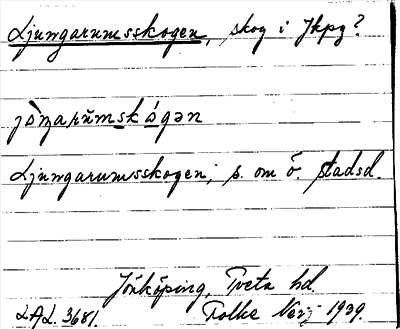 Ljungarumsskogen, skog i Jkpg?
jòŋarŭmskógən
Ljungarumsskogen; s. om ö. stadsd.
Jönköping, Tveta hd.
LAL. 3681. Folke 1939.